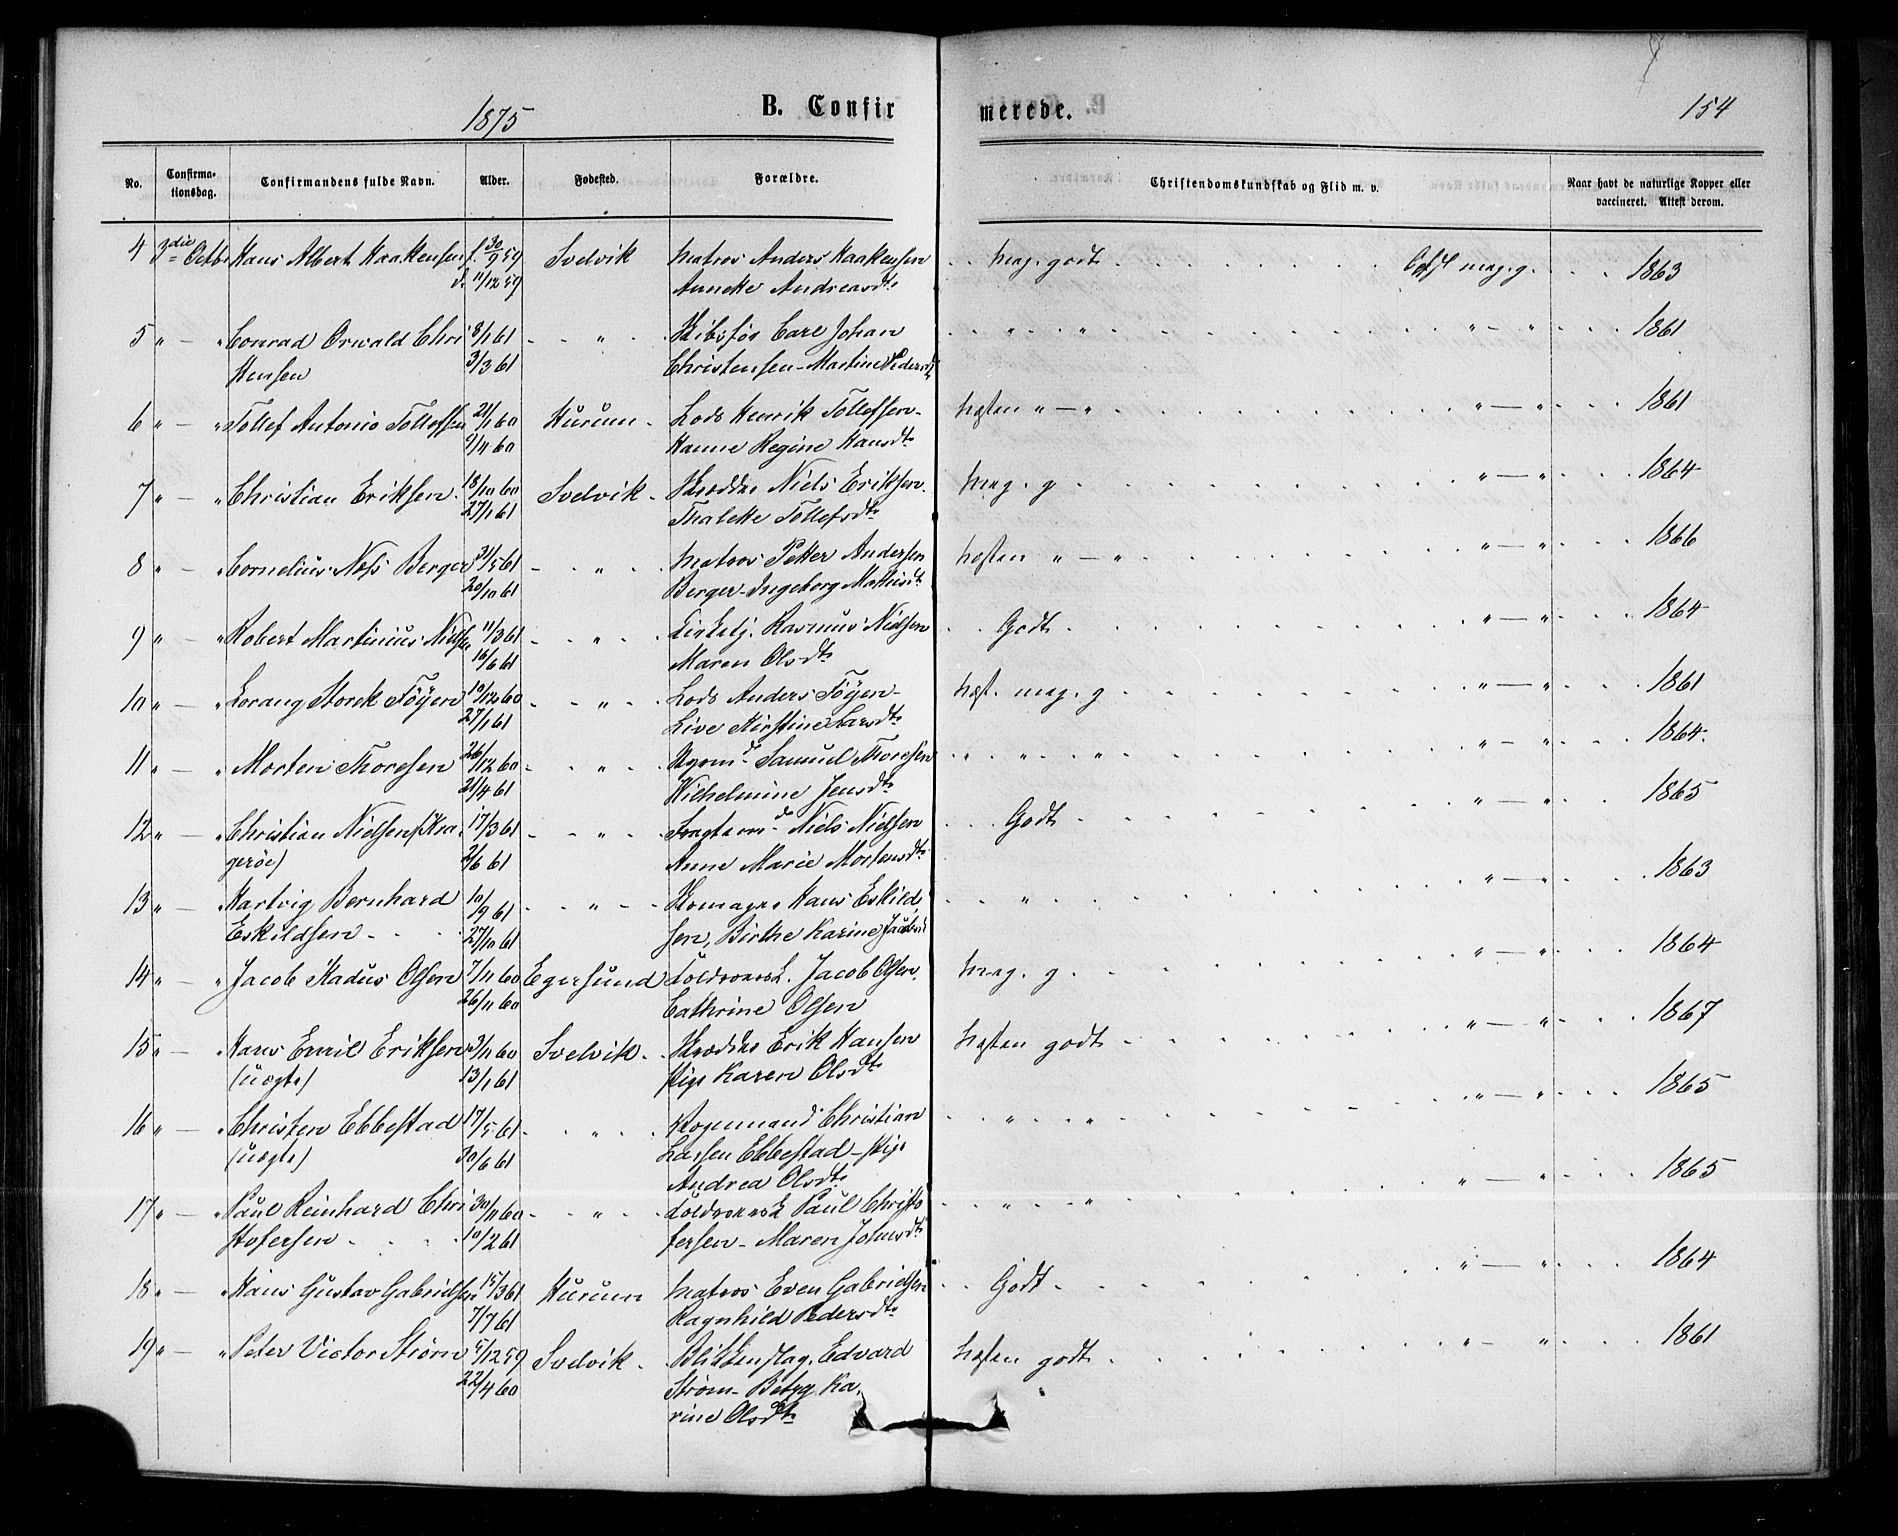 1875 B. Confirmerede. 154
No. Confirmationsdag. Confirmandens fulde Navn. Alder. Fødested. Forældre. Christendomskundskab og Flid m. v. Naar havt de naturlige Kopper eller vaccineret. Attest derom.
4 3die Octbr Hans Albert Haakensen f. 30/9 59 Svelvik Matros Anders Haakensen meg. godt meg. g. 1863
d. 11/12 59 Anneke Andreasdt.
5 " — " Conrad Oswald Chri 8/1 61 " Carl Johan " " " — " 1861
stensen 3/3 61 Christensen - Martine Pedersdt
6 " — " Tollef Antonio Tollefsen 21/1 60 Hurum Lods Henrik Tollefsen - næsten " — " " — " 1861
9/4 60 Hanne Regine Hansdt.
7 " — " Christian Eriksen 18/10 60 Svelvik Skrædder Niels Eriksen meg. g " — " 1864
27/1 61 Thaleke Tollefsdt.
8 " — " Cornelius Næss Berger 21/5 61 " Matros Petter Andersen næsten " — " " — " 1866
20/10 61 Berger - Ingeborg Mathisdt.
9 " — " Robert Martinius Nielsen 11/3 61 " Rasmus Nielsen Godt " — " 1864
16/6 61 Maren Olsdt.
10 " — " Lorang Storck Föyen 10/12 60 " Lods Anders Föyen - næst. meg. g " — " 1861
27/1 61 Live Kirstine Larsdt.
11 " — " Morten Thoresen 26/12 60 " Samuel Thoresen " " " " — " 1864.
21/4 61 Wilhelmine Jensdt.
12 " — " Christian Nielsen (Kra 17/3 61 " Niels Nielsen Godt " — " 1865
gerøe) 2/6 61 Anne Marie Mortensdt.
13 " — " Hartvig Bernhard 10/9 61 " Skomager Hans Eskild " " — " 1863
Eskildsen 27/10 61 sen, Birthe Karine
14 " — " Jacob Stadus Olsen 7/11 60 Egersund Jacob Olsen, meg. g " — " 1864
26/11 60 Cathrine Olsen
15 " — " Hans Emil Eriksen 3/11 60 Svelvik Skrædder Erik Hansen næsten godt " — " 1867
(uægte) 13/1 61 Pige Karen Olsdt.
16 " — " Christen Ebbestad 17/5 61 " Christian " " " — " 1865
(uægte) 30/6 61 Larsen Ebbestad - Pige
Andrea Olsdt.
17 " — " Paul Reinhard Chri 30/11 60 " Paul Christo " " " — " 1865
stofersen 10/2 61 fersen - Maren Johnsdt.
18 " — " Hans Gustav Gabrielsen 15/3 61 Hurum Matros Even Gabrielsen Godt " — " 1864
7/7 61 Ragnhild Pedersdt.
19 " — " Peter Victor Strøm 5/12 59 Svelvik Blikkenslag. Edvard næsten godt " — " 1861
22/4 60 Strøm - Ka
rine Olsdt.